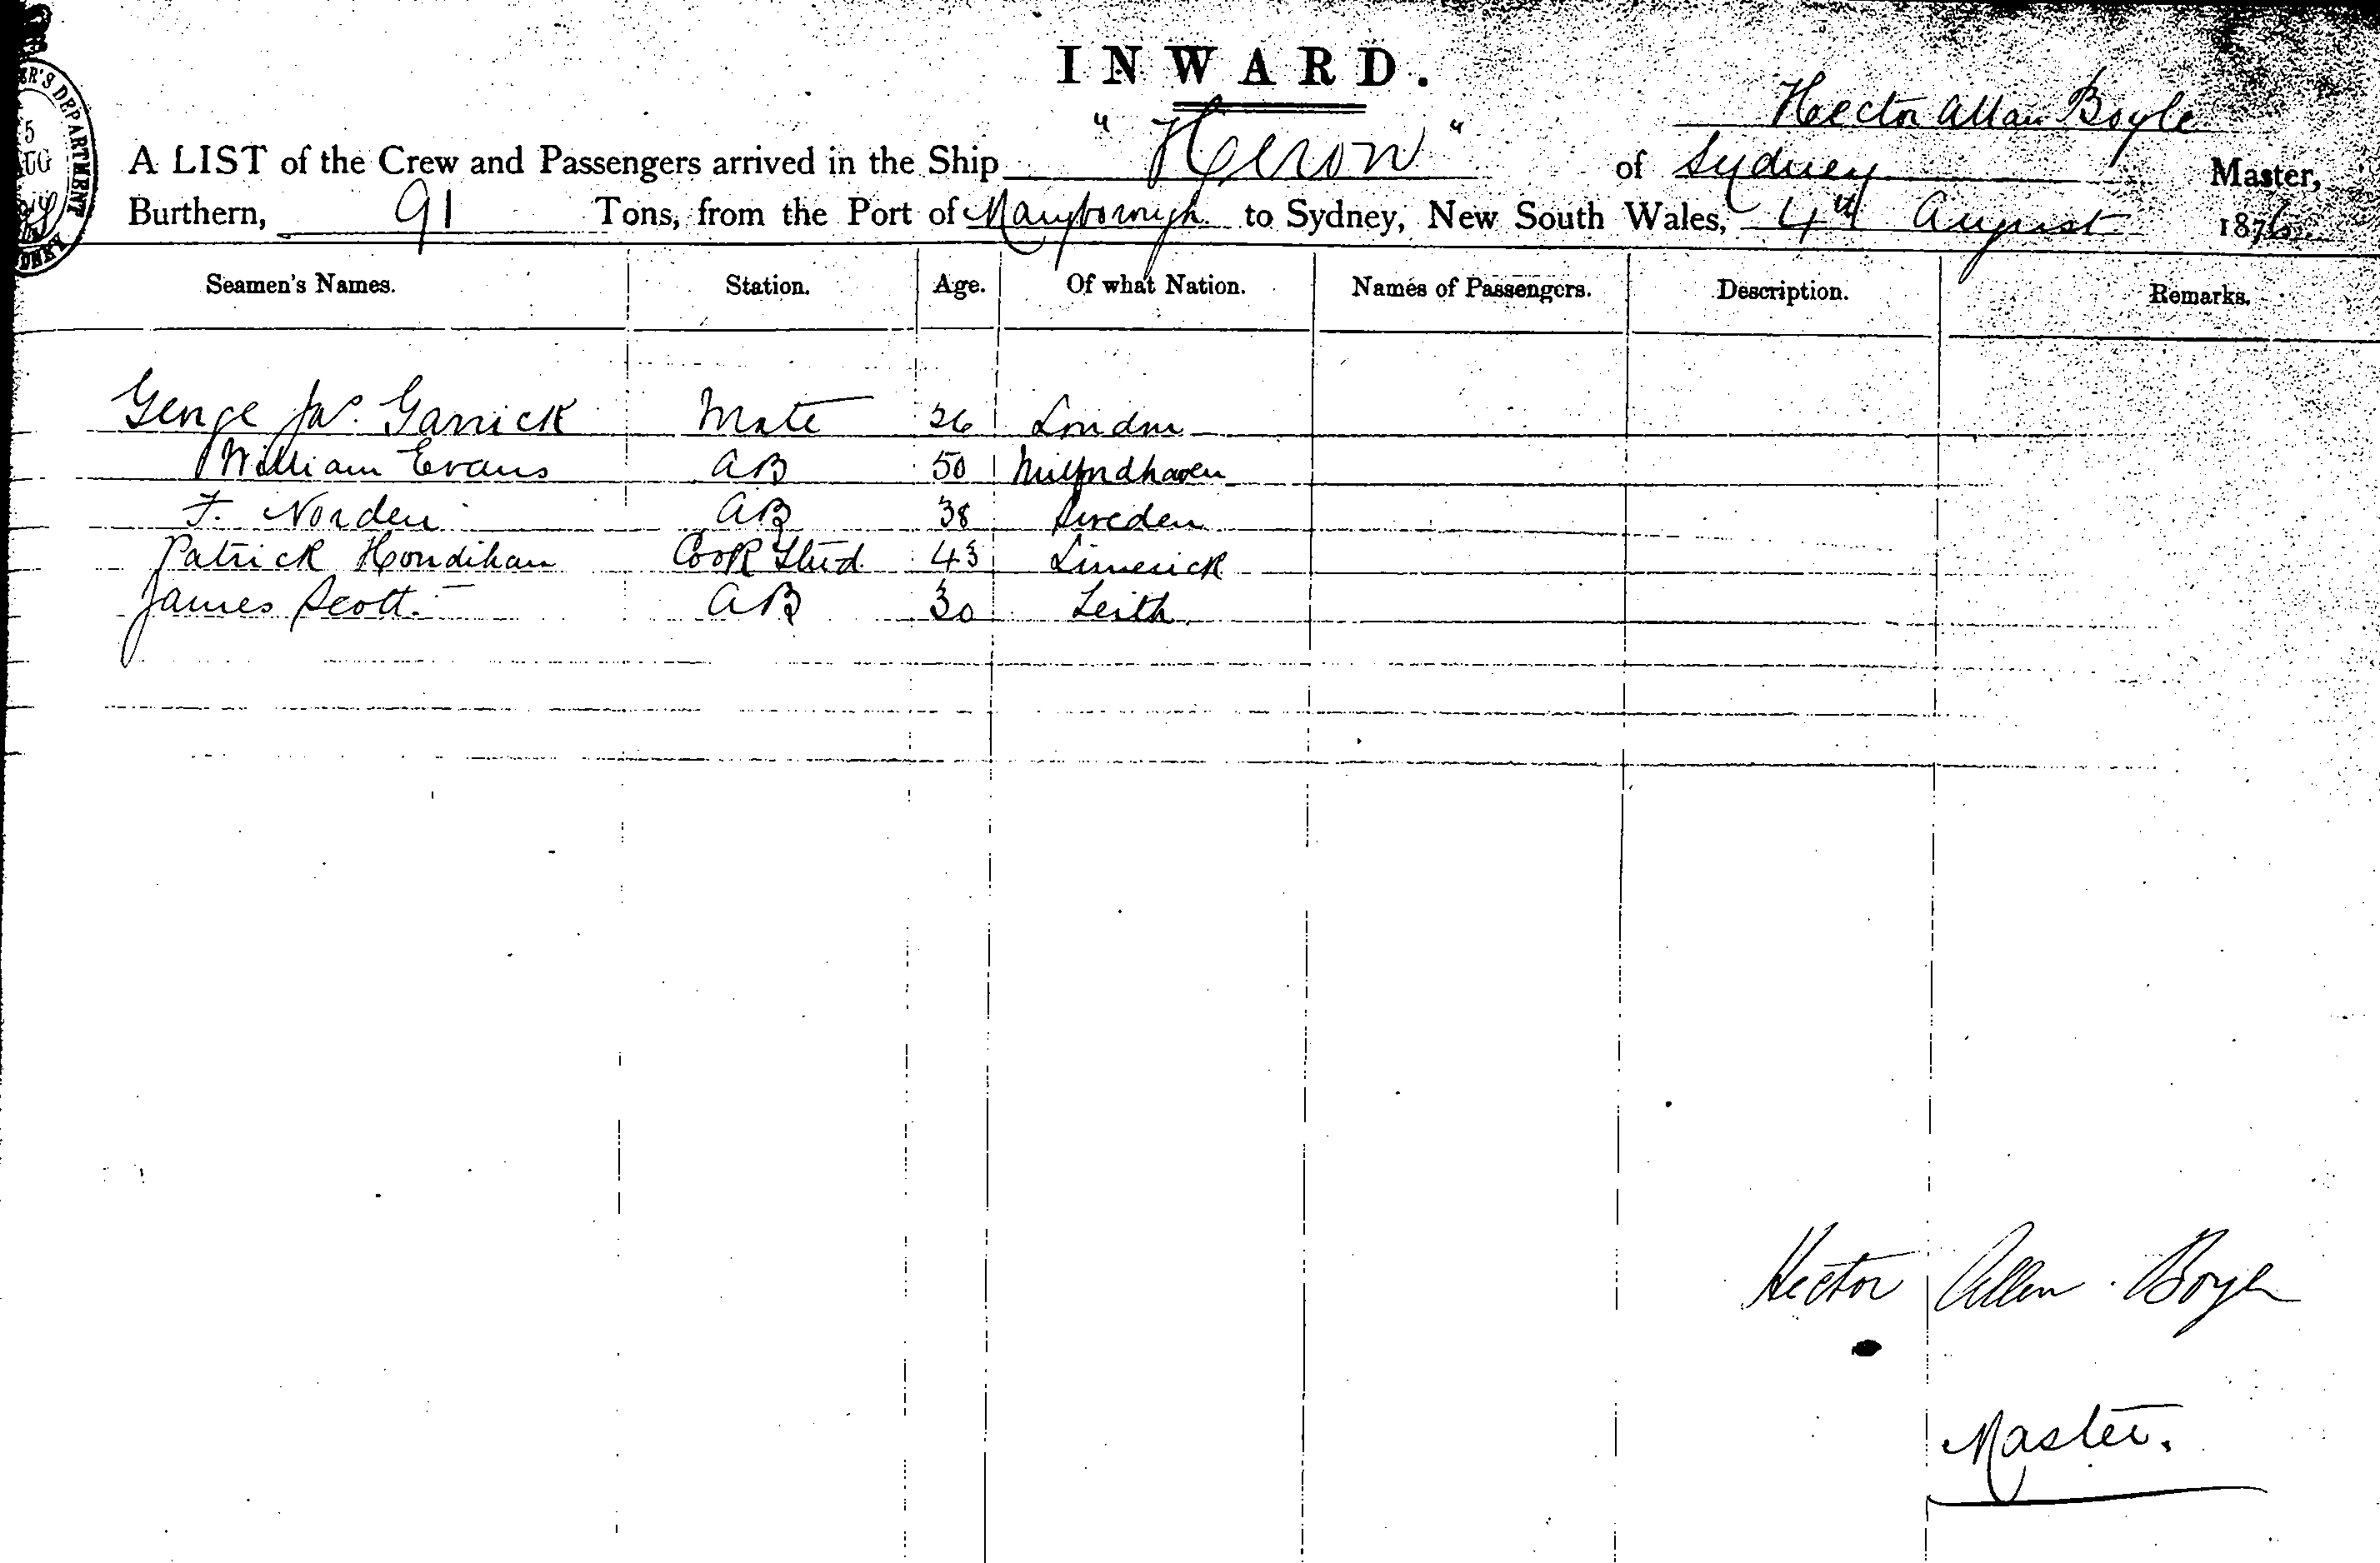 INWARD.
Hector Allan Boyle
A LIST of the Crew and Passengers arrived in the Ship "Heron" of Sydney Master,
Burthern, 91 Tons, from the Port of Maryborough to Sydney, New South Wales, 4th August 1876
Seamen's Names. Station. Age. Of what Nation. Names of Passengers. Description. Remarks.
George Jas. Garrick Mate 26 London
William Evans AB 50 Milfordhaven
F. Norden AB 38 Sweden
Patrick Hondihan Cook Stud 43 Limerick
James Scott. AB 30 Leith
Hector Allan Boyle
Master.